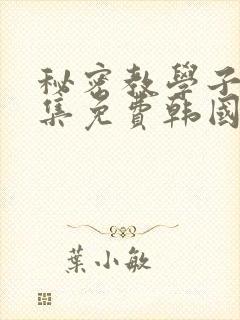 秘密教學子
集免費韩國
葉小敏